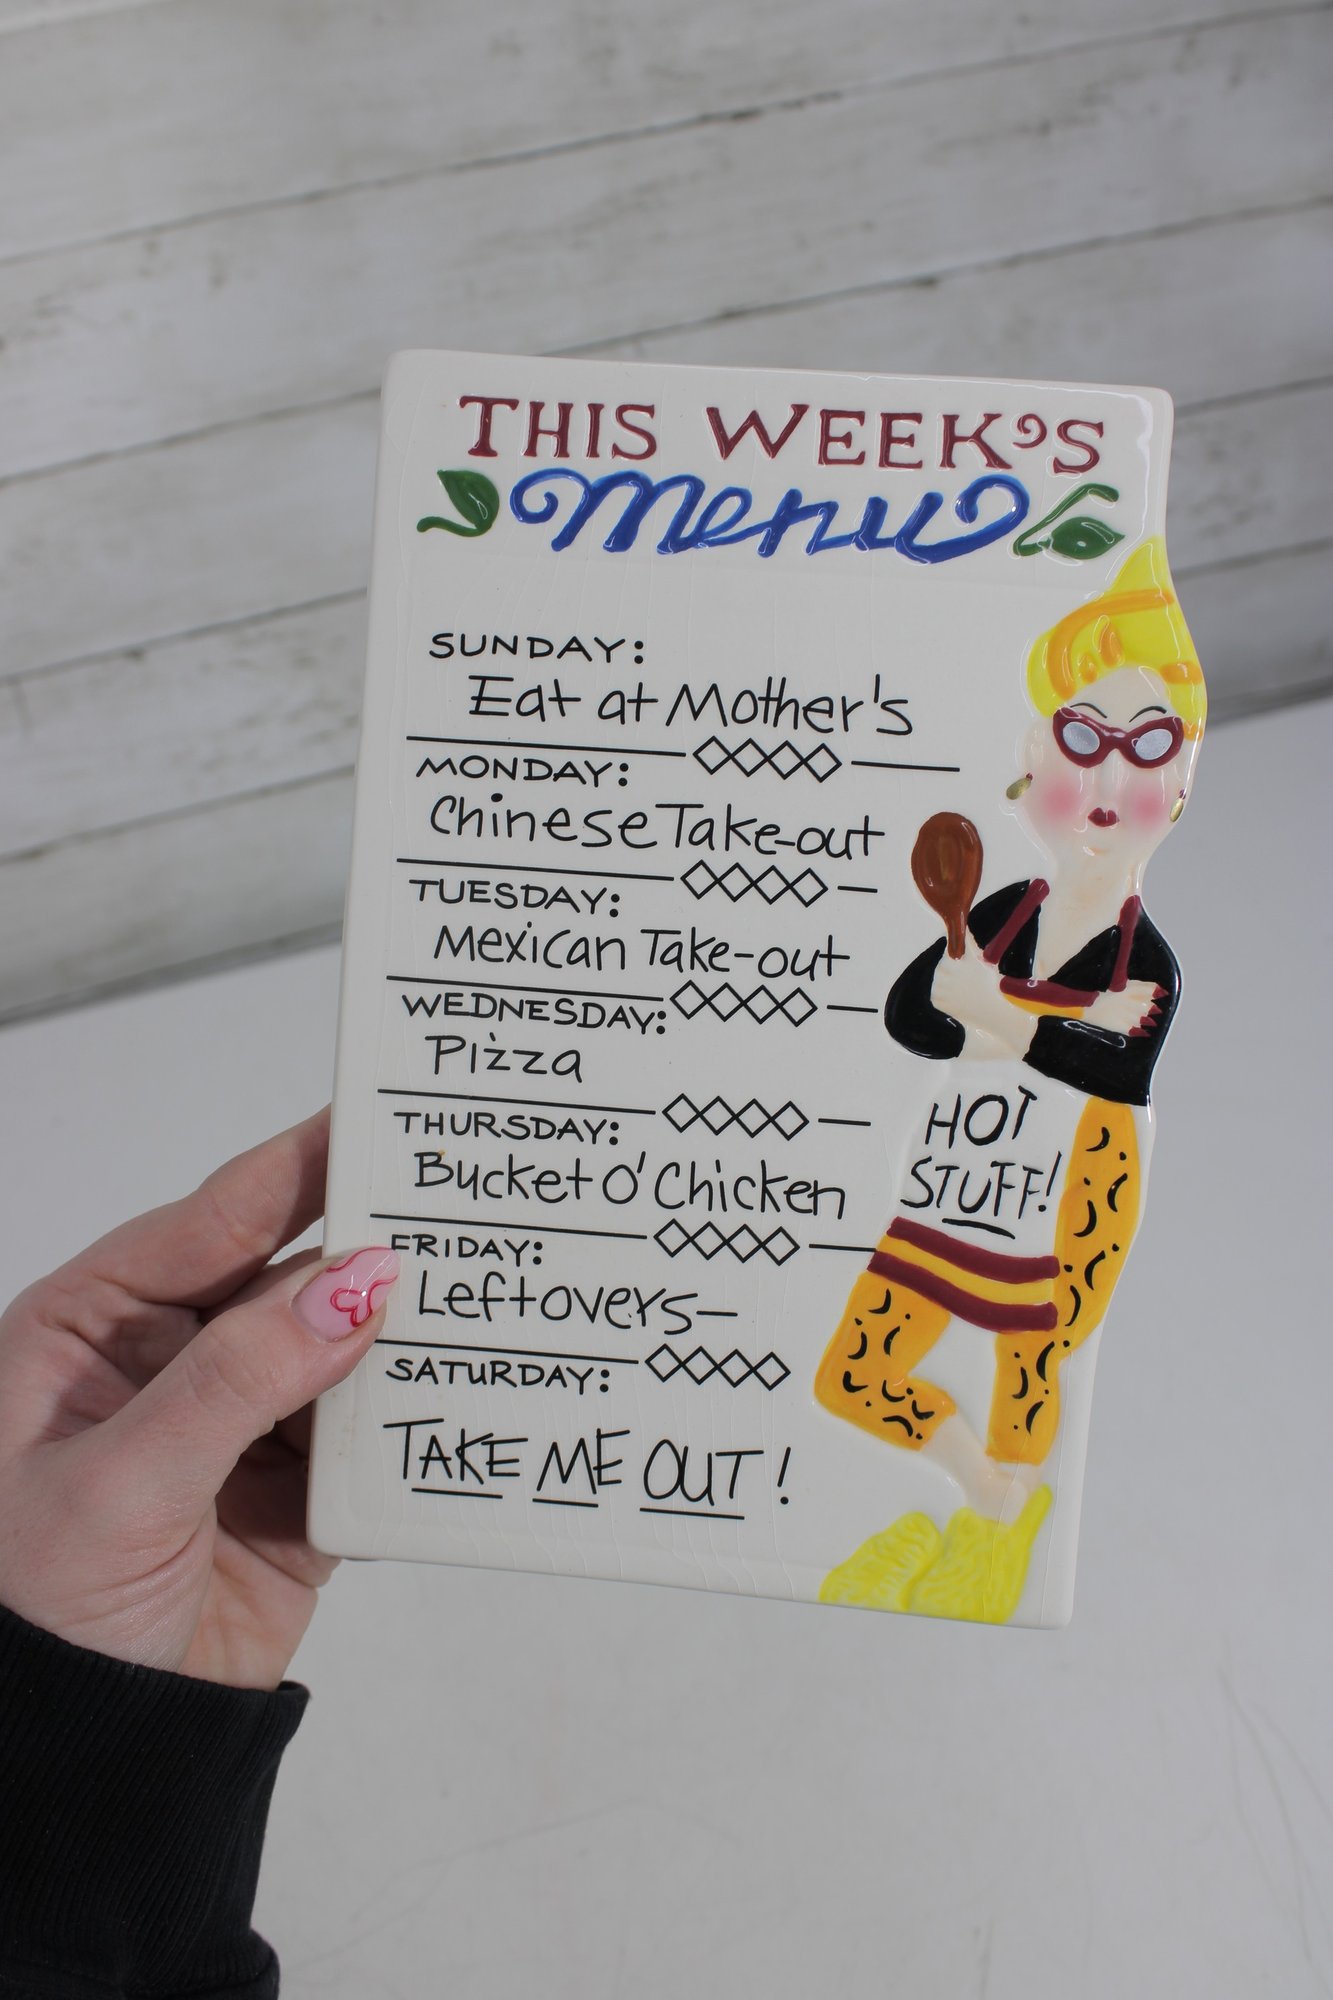 THIS WEEK'S
menu
SUNDAY:
Eat at Mother's
MONDAY:
Chinese Take-out
TUESDAY:
Mexican Take-out
WEDNESDAY:
Pizza
THURSDAY:
Bucket O' Chicken
FRIDAY:
Leftovers-
SATURDAY:
TAKE ME OUT!
HOT
STUFF!